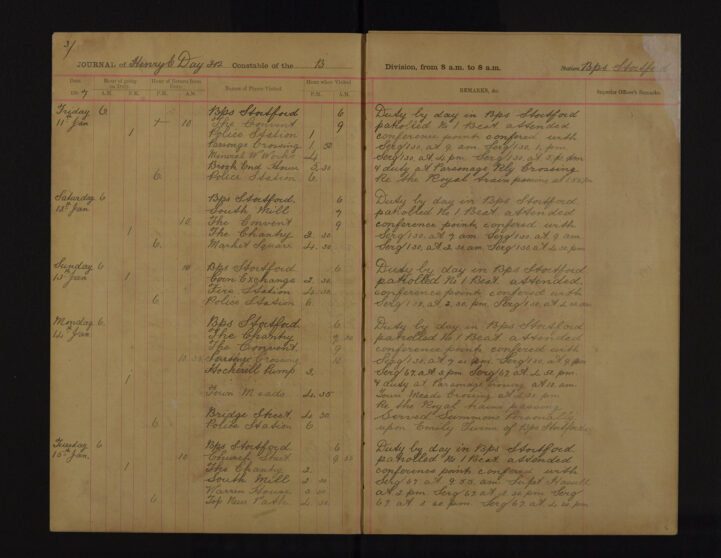 31
JOURNAL of Henry E Day 302 Constable of the 13 Division, from 8 a.m. to 8 a.m. Station Bps Stortford
Date Hour of going on Duty Hour of Return from Duty Names of Places Visited Hour when Visited REMARKS, &c. Superior Officer's Remarks.
A.M. P.M. P.M. A.M. P.M. A.M.
Friday 6 Bps Stortford 6 Duty by day in Bps Stortford
11th Jan 10 The Convent 9 patrolled No 1 Beat attended
1 Police Station 1 conference points confered with
Parsonage Crossing 1 50 Serg 130 at 9 am. Serg 130 1. pm
4 Serg 130 at 4 pm
Brook End House 5.30 & duty at Parsonage Rly Crossing
6 Police Station 6 Re the Royal train passing at
Saturday 6 Bps Stortford 6 Duty by day in Bps Stortford
Jan South Mill 7 patrolled No 1 Beat attended
10 The Convent 9 conference points confered with
1 The Chantry 2 30 Serg 130 at 9 am. Serg 130 at
6 Market Square 4.30 Serg 130 at 2.30 am Serg 130 at 4.30 pm
Sunday 6 10 Bps Stortford 6 Duty by day in Bps Stortford
Jan 1 Corn Exchange 2 30 patrolled No 1 Beat. attended
Fire Station 4.30 conference points confered with
6 Police Station 6 Serg 130 at 2.30 pm
Monday 6 Bps Stortford 6 Duty by day in Bps Stortford
14th Jan The Chantry 7 30 patrolled No 1 Beat attended
The Convent 9 conference points confered with
10.30 Parsonage Crossing 10
1 Hockerill Pump 3 Serg 67 at 3 pm Serg 67 at 4.30 pm
& duty at Parsonage Crossing at 10 am
Town Meads 4.30 Town Meads Crossing at 4.30 pm
Re the Royal trains passing
Bridge Street 4 30 Served Summons Personally
6 Police Station 6 upon Emily of Bps Stortford
Tuesday 6 Bps Stortford 6 Duty by day in Bps Stortford
15th Jan 10 Church Street 9 30 patrolled No 1 Beat attended
1 The Chantry 2 conference points confered with
South Mill 2 30 Serg 67 at 9.30 am. Supt
Warren House 3 30 at 2 pm Serg 67 at 3.30 pm Serg
6 Top New Path 4 30 67 at 3 30 pm Serg 67 at 4.30 pm